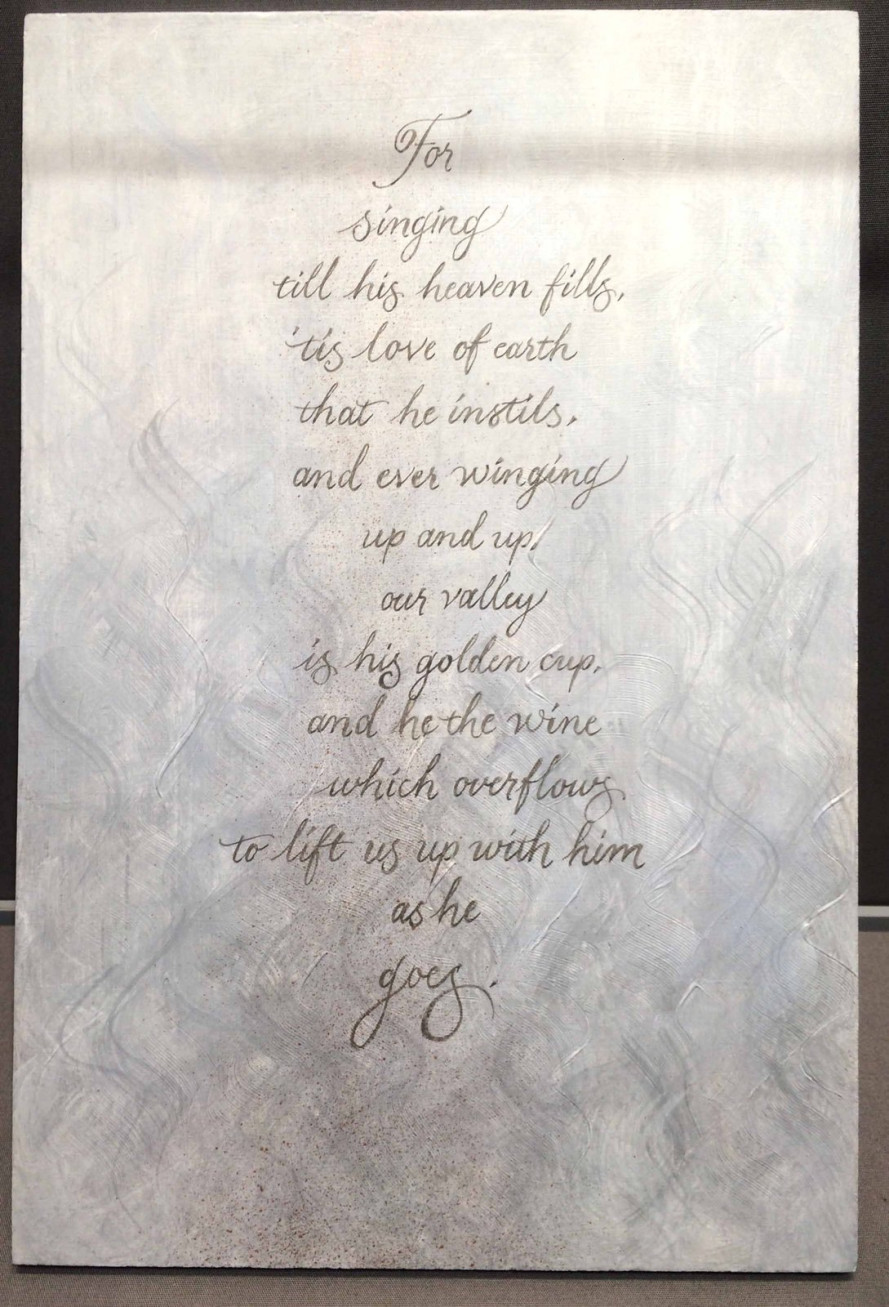 For
singing
till his heaven fills,
'tis love of earth
that he instils,
and ever winging
up and up,
our valley
is his golden cup,
and he the wine
which overflows
to lift us up with him
as he
goes.